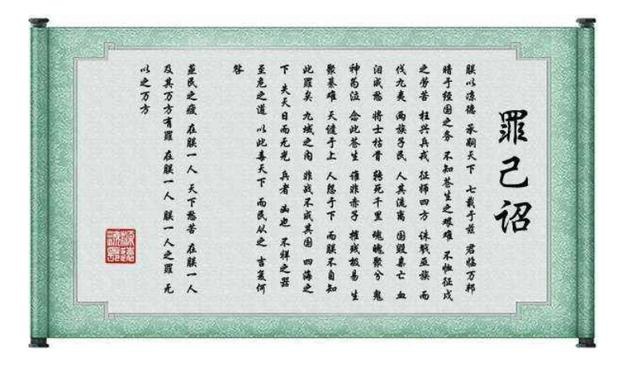 罪己诏
朕以凉德 承嗣天下 七载于兹 君临万邦
暗于经国之务 不知苍生之艰难 不恤征戍
之劳苦 枉兴兵戎 征师四方 诛戮亚族 而
伐九夷 两族子民 人其流离 国毁巢亡 血
泪成愁 将士枯骨 转死千里 魂魄聚兮 鬼
神为泣 念此苍生 谁非赤子 摧残极易 生
聚甚难 天谴于上 人怨于下 而朕不自知
此罪矣 九域之内 非战不成其国 四海之
下 失天日而无光 兵者 凶也 不祥之器
至危之道 以此毒天下 而民从之 吉复何
咎
盖民之疲 在朕一人 天下愁苦 在朕一人
及其万方有罪 在朕一人 朕一人之罪 无
以之万方